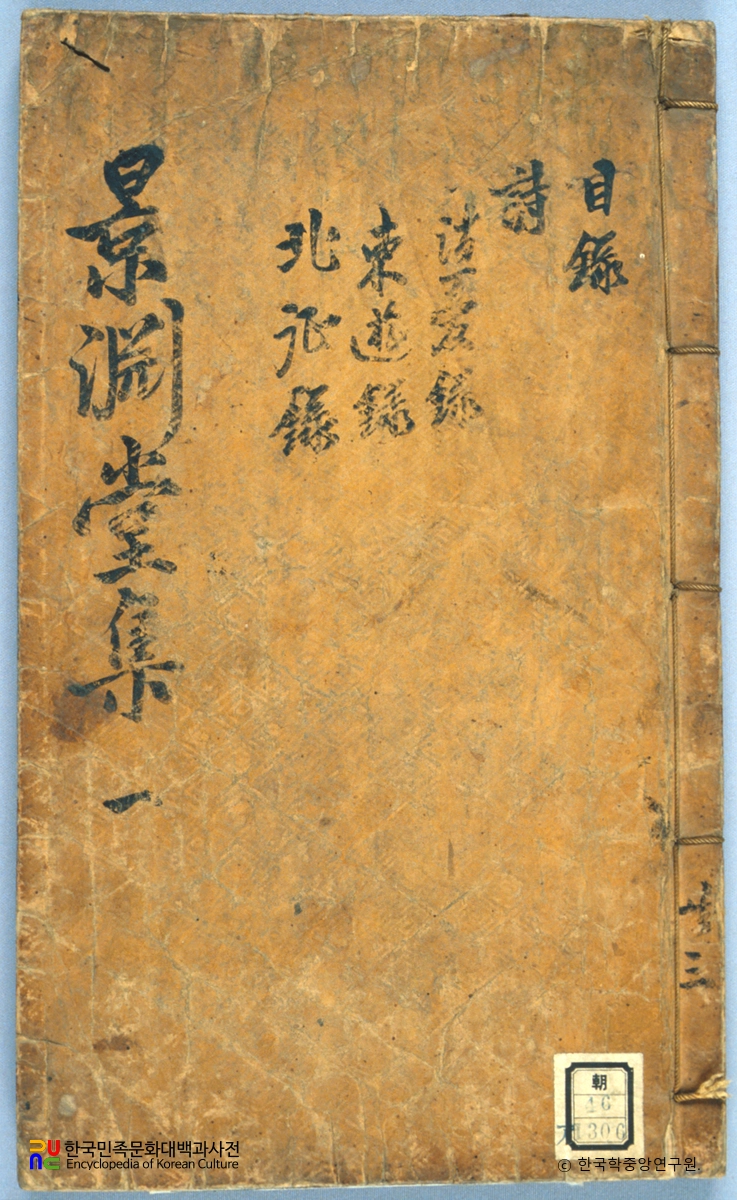 目錄
詩
錄
東遊錄
北征錄
景淵堂集 一
三
朝
46
306
한국민족문화대백과사전
Encyclopedia of Korean Culture
© 한국학중앙연구원